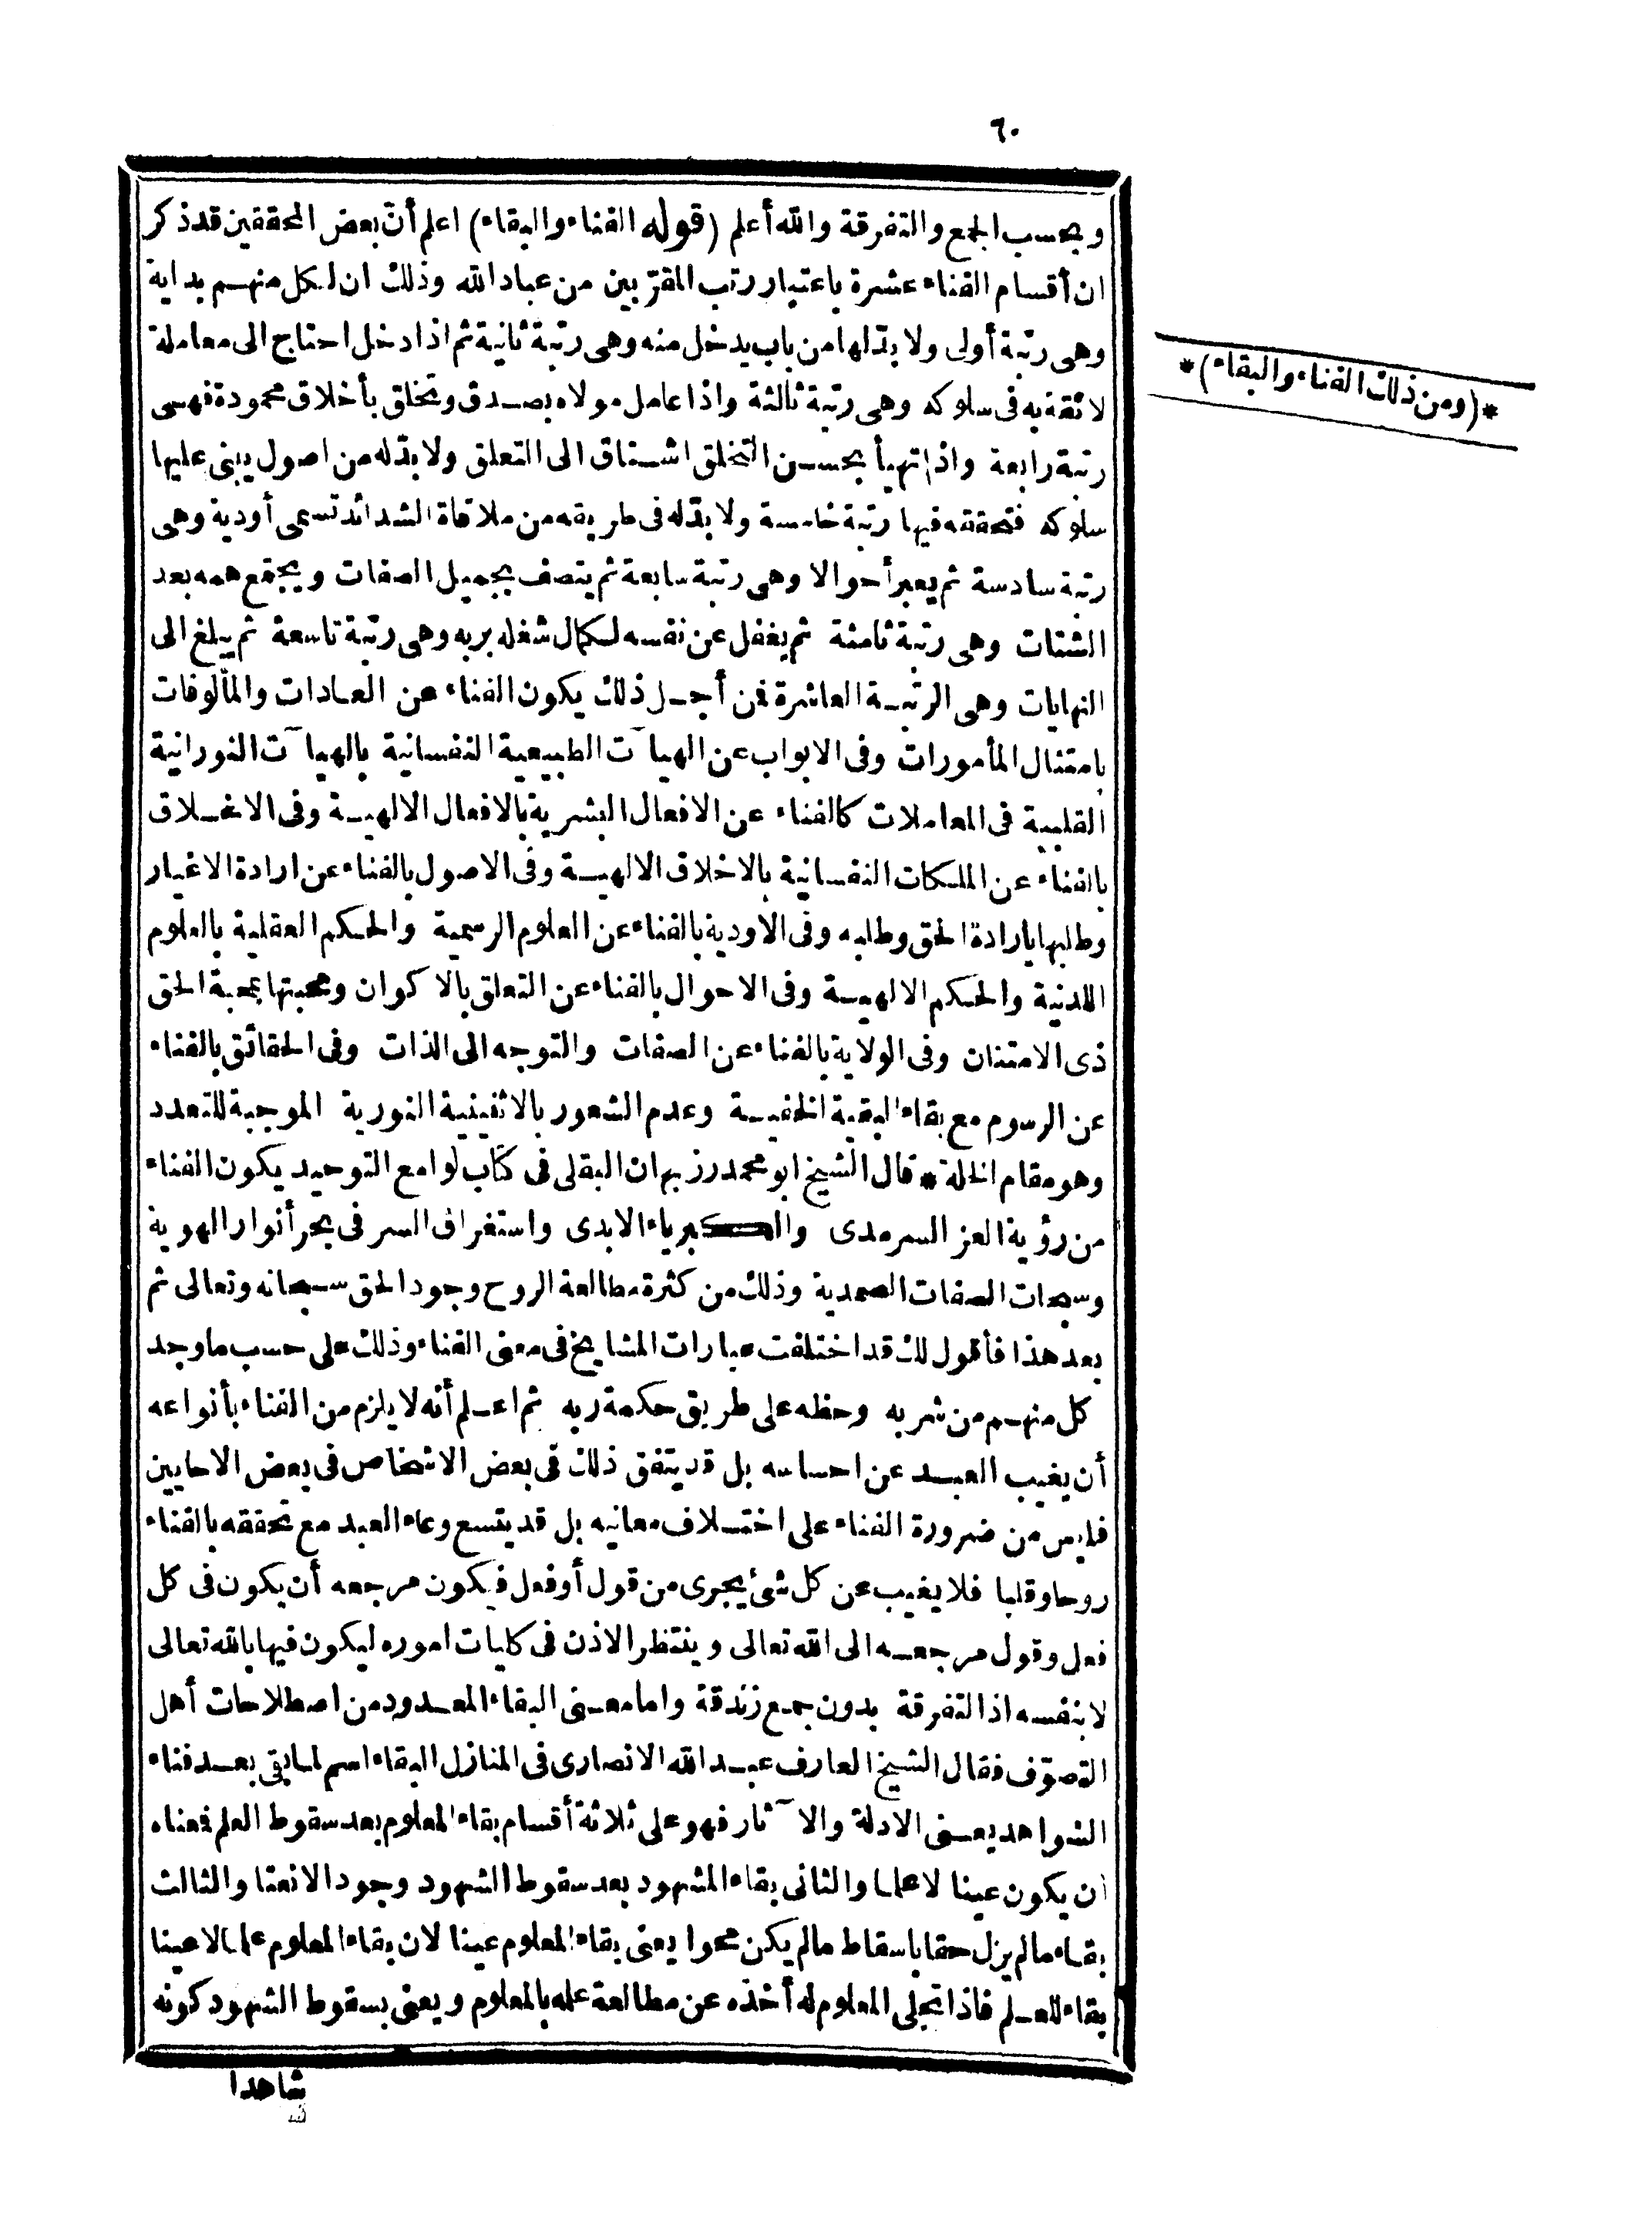 ٦٠
وبحسب الجمع والتفرقة والله أعلم (قوله الفناء والبقاء) اعلم أنّ بعض المحققين قد ذكر
ان أقسام الفناء عشرة باعتبار رتب المقرّبين من عباد الله وذلك ان لكل منهم بداية
وهى رتبة أولى ولا بدّ لها من باب يدخل منه وهى رتبة ثانية ثم اذا دخل احتاج الى معاملة
لائقة به فى سلوكه وهى رتبة ثالثة واذا عامل مولاه بصدق وتخلق بأخلاق محمودة فهى
رتبة رابعة واذا تهيأ بحسن التخلق اشتاق الى التعلق ولا بدّ له من اصول يبنى عليها
سلوكه فتحققه فيها رتبة خامسة ولا بدّ له فى طريقه من ملاقاة الشدائد تسمى أودية وهى
رتبة سادسة ثم يعبر أحوالا وهى رتبة سابعة ثم يتصف بجميل الصفات ويجتمع همه بعد
الشتات وهى رتبة ثامنة ثم يغفل عن نفسه لكمال شغله بربه وهى رتبة تاسعة ثم يبلغ الى
النهايات وهى الرتبة العاشرة فمن أجل ذلك يكون الفناء عن العادات والمألوفات
بامتثال المأمورات وفى الابواب عن الهيآت الطبيعية النفسانية بالهيآت النورانية
القلبية فى المعاملات كالفناء عن الافعال البشرية بالافعال الالهية وفى الاخلاق
بالفناء عن الملكات النفسانية بالاخلاق الالهية وفى الاصول بالفناء عن ارادة الاغيار
وطلبها بارادة الحق وطلبه وفى الاودية بالفناء عن العلوم الرسمية والحكم العقلية بالعلوم
اللدنية والحكم الالهية وفى الاحوال بالفناء عن التعلق بالاكوان ومحبتها بمحبة الحق
ذى الامتنان وفى الولاية بالفناء عن الصفات والتوجه الى الذات وفى الحقائق بالفناء
عن الرسوم مع بقاء البقية الخفية وعدم الشعور بالاثنينية النورية الموجبة للتعدد
وهو مقام الخلة * قال الشيخ ابو محمد رزبهان البقلى فى كتاب لوامع التوحيد يكون الفناء
من رؤية العز السرمدى والكبرياء الابدى واستغراق السر فى بحر أنوار الهوية
وسبحات الصفات الصمدية وذلك من كثرة مطالعة الروح وجود الحق سبحانه وتعالى ثم
بعد هذا فأقول لك قد اختلفت عبارات المشايخ فى معنى الفناء وذلك على حسب ما وجد
كل منهم من شربه وحظه على طريق حكمة ربه ثم اعلم أنه لا يلزم من الفناء بأنواعه
أن يغيب العبد عن احساسه بل قد يتفق ذلك فى بعض الاشخاص فى بعض الاحايين
فليس من ضرورة الفناء على اختلاف معانيه بل قد يتسع وعاء العبد مع تحققه بالفناء
روحا وقلبا فلا يغيب عن كل شئ يجرى من قول أو فعل فيكون مرجعه أن يكون فى كل
فعل وقول مرجعه الى الله تعالى وينتظر الاذن فى كليات اموره ليكون فيها بالله تعالى
لا بنفسه اذ التفرقة بدون جمع زندقة واما معنى البقاء المعدود من اصطلاحات أهل
التصوّف فقال الشيخ العارف عبد الله الانصارى فى المنازل البقاء اسم لما بقى بعد فناء
الشواهد يعنى الادلة والآثار فهو على ثلاثة أقسام بقاء المعلوم بعد سقوط العلم فمعناه
ان يكون عينا لا علما والثانى بقاء المشهود بعد سقوط الشهود وجودا لا نعتا والثالث
بقاء ما لم يزل حقا باسقاط ما لم يكن محوا يعنى بقاء المعلوم عينا لان بقاء المعلوم علما لا عينا
بقاء للعلم فاذا تجلى المعلوم له أخذه عن مطالعة علمه بالمعلوم ويعنى بسقوط الشهود كونه
شاهدا
*(ومن ذلك الفناء والبقاء)*